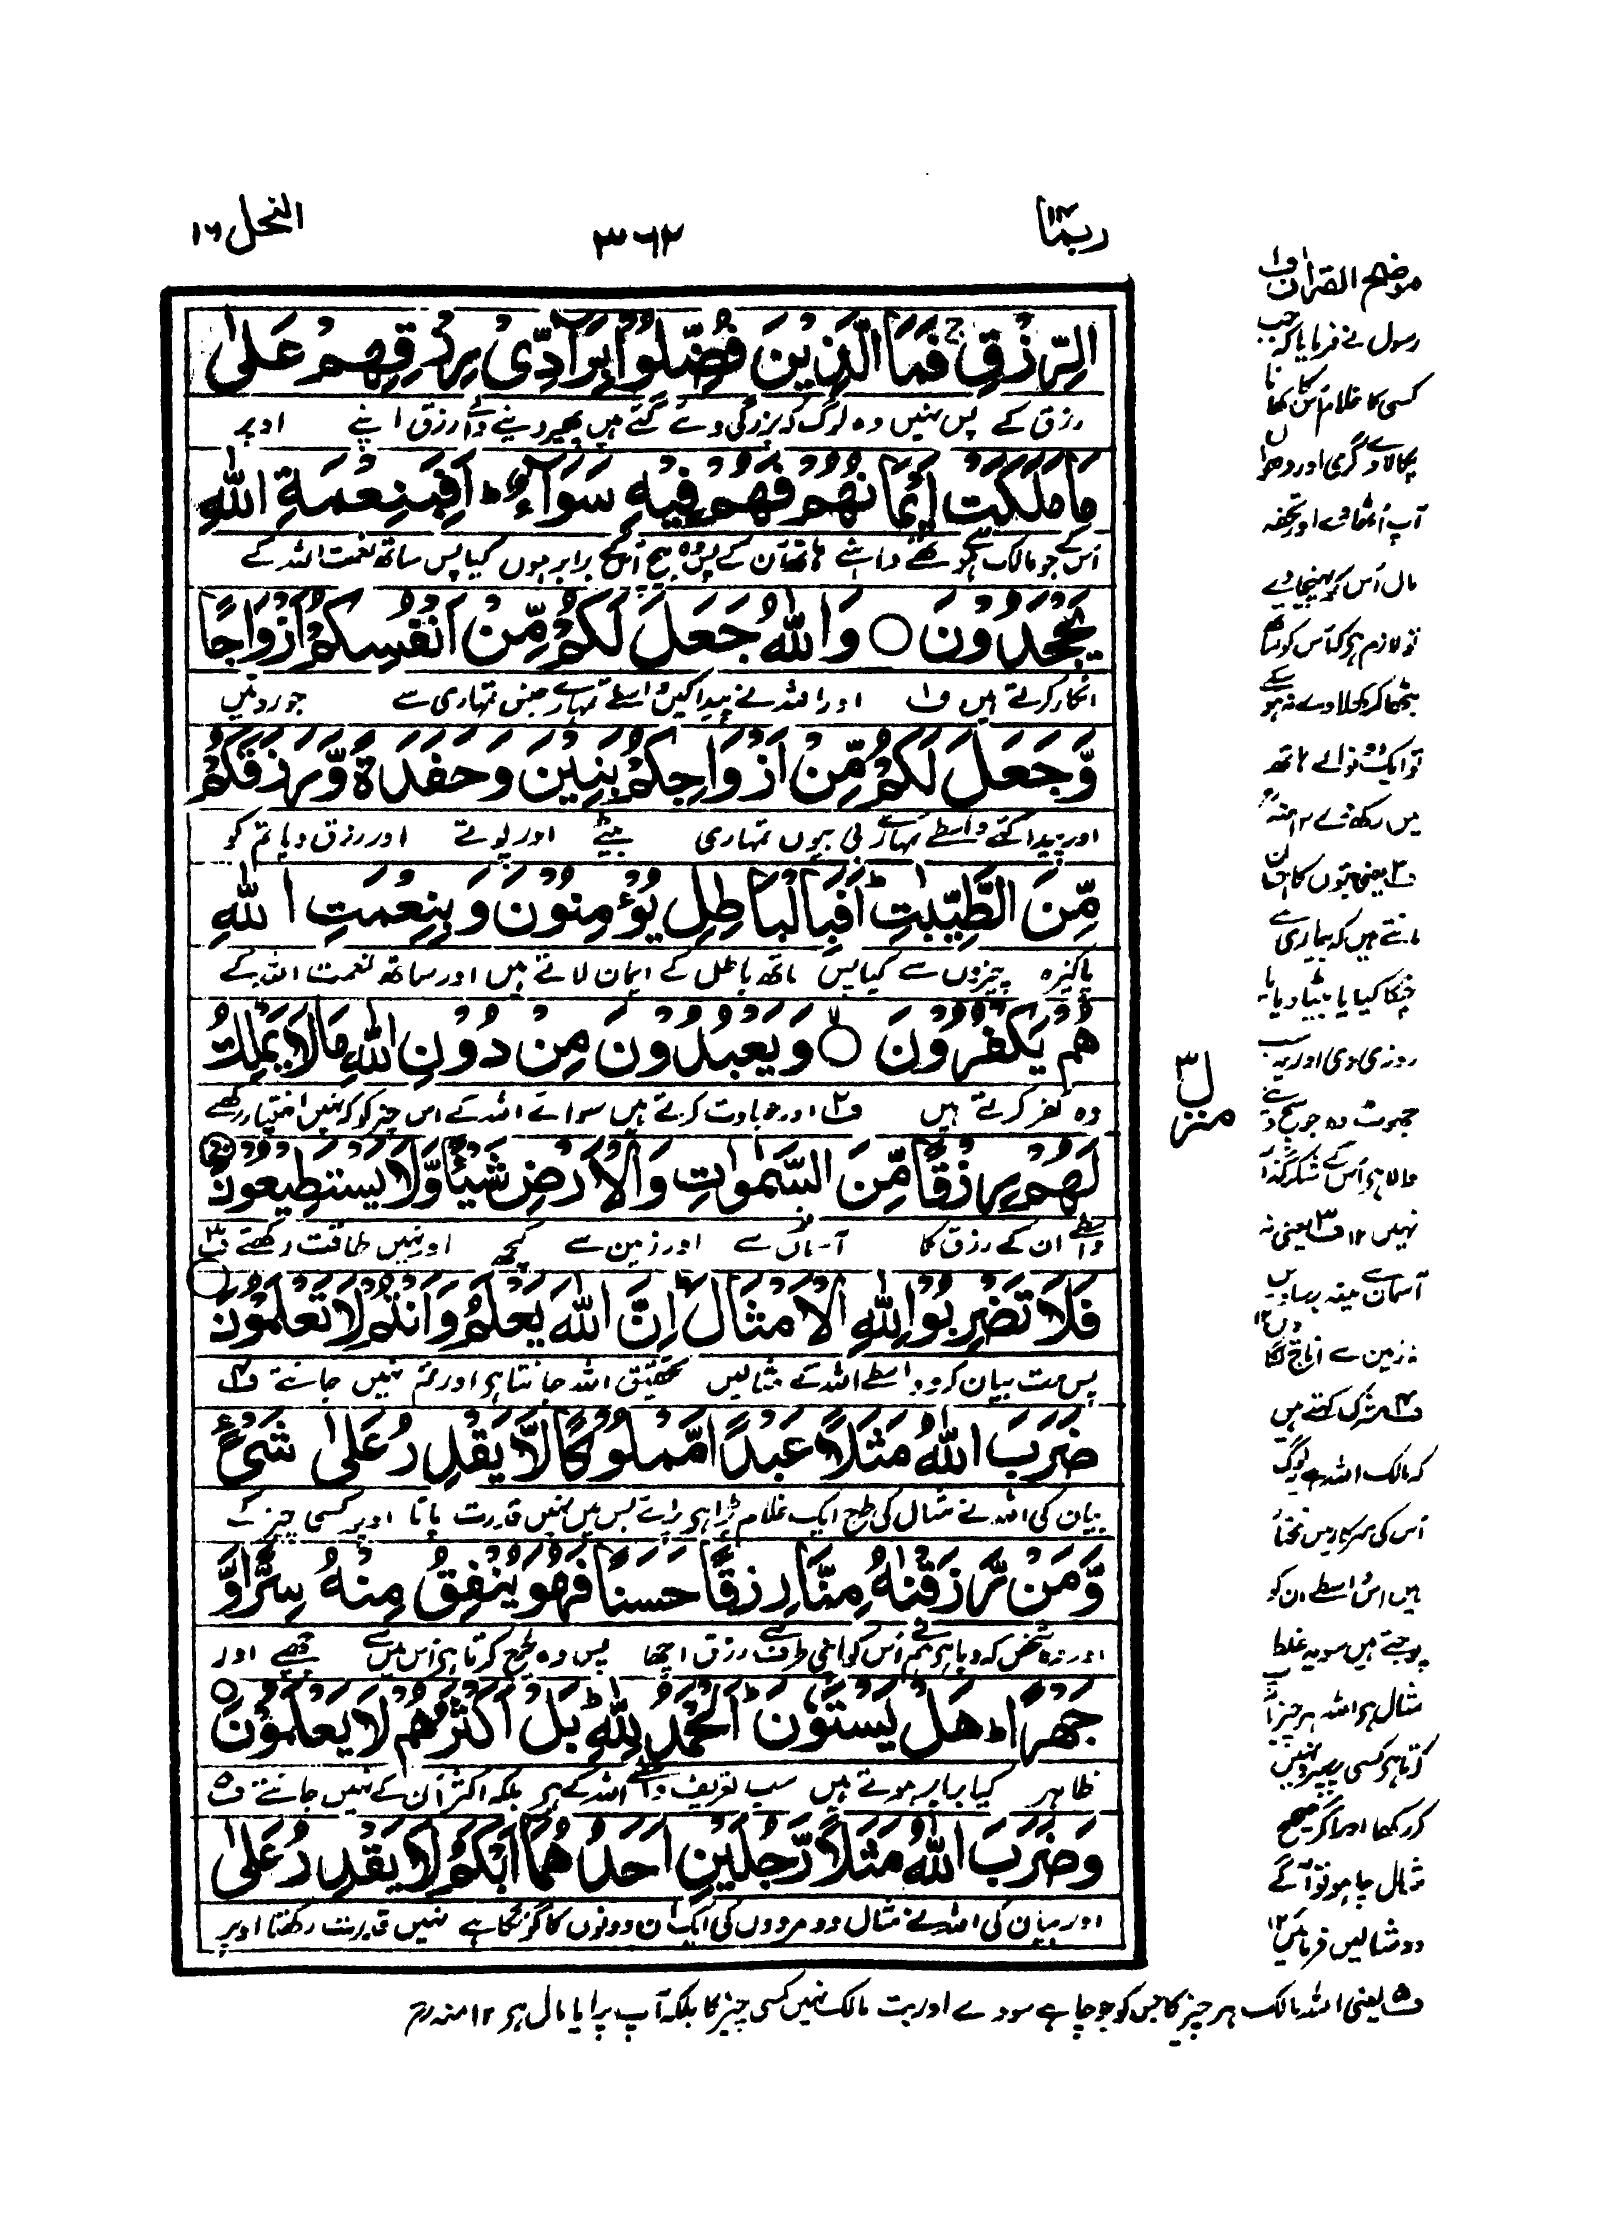 ربما ۱۴
۳۶۲
النحل ۱۶
الرِّزْقِ ۚ فَمَا الَّذِيْنَ فُضِّلُوْا بِرَآدِّىْ رِزْقِهِمْ عَلٰى
رزق کے پس نہیں وہ لوگ کہ بزرگی دئے گئے ہیں پھیر دینے والے رزق اپنے اوپر
مَا مَلَكَتْ اَيْمَانُهُمْ فَهُمْ فِيْهِ سَوَآءٌ ؕ اَفَبِنِعْمَةِ اللّٰهِ
اُس کے جو مالک ہوئے داہنے ہاتھ اُن کے پس وہ بیچ اُسکے برابر ہوں کیا پس ساتھ نعمت اللہ کے
يَجْحَدُوْنَ ○ وَاللّٰهُ جَعَلَ لَكُمْ مِّنْ اَنْفُسِكُمْ اَزْوَاجًا
انکار کرتے ہیں ف۱ اور اللہ نے پیدا کیں واسطے تمہارے جنس تمہاری سے جوروئیں
وَّجَعَلَ لَكُمْ مِّنْ اَزْوَاجِكُمْ بَنِيْنَ وَحَفَدَةً وَّرَزَقَكُمْ
اور پیدا کئے واسطے تمہارے بی بیوں تمہاری بیٹے اور پوتے اور رزق دیا تم کو
مِّنَ الطَّيِّبٰتِ ؕ اَفَبِالْبَاطِلِ يُؤْمِنُوْنَ وَبِنِعْمَتِ اللّٰهِ
پاکیزہ چیزوں سے کیا پس ساتھ باطل کے ایمان لاتے ہیں اور ساتھ نعمت اللہ کے
هُمْ يَكْفُرُوْنَ ○ وَيَعْبُدُوْنَ مِنْ دُوْنِ اللّٰهِ مَا لَا يَمْلِكُ
وہ کفر کرتے ہیں ف۲ اور عبادت کرتے ہیں سوائے اللہ کے اس چیز کو کہ نہیں اختیار رکھتے
لَهُمْ رِزْقًا مِّنَ السَّمٰوٰتِ وَالْاَرْضِ شَيْئًا وَّلَا يَسْتَطِيْعُوْنَ
واسطے ان کے رزق کا آسمانوں سے اور زمین سے کچھ اور نہیں طاقت رکھتے ف۳
فَلَا تَضْرِبُوْا لِلّٰهِ الْاَمْثَالَ ؕ اِنَّ اللّٰهَ يَعْلَمُ وَاَنْتُمْ لَا تَعْلَمُوْنَ
پس مت بیان کرو واسطے اللہ کے مثالیں تحقیق اللہ جانتا ہی اور تم نہیں جانتے ف۴
ضَرَبَ اللّٰهُ مَثَلًا عَبْدًا مَّمْلُوْكًا لَّا يَقْدِرُ عَلٰى شَىْءٍ
بیان کی اللہ نے مثال کی طرح ایک غلام پرائے بس میں نہیں قدرت پاتا اوپر کسی چیز کے
وَّمَنْ رَّزَقْنٰهُ مِنَّا رِزْقًا حَسَنًا فَهُوَ يُنْفِقُ مِنْهُ سِرًّا وَّ
اور وہ شخص کہ دیا ہی ہم نے اُس کو اپنی طرف سے رزق اچھا پس وہ خرچ کرتا ہی اُس میں سے چھپے اور
جَهْرًا ؕ هَلْ يَسْتَوٗنَ ؕ اَلْحَمْدُ لِلّٰهِ ؕ بَلْ اَكْثَرُهُمْ لَا يَعْلَمُوْنَ ○
ظاہر کیا برابر ہوتے ہیں سب تعریف واسطے اللہ کے ہی بلکہ اکثر اُن کے نہیں جانتے ف۵
وَضَرَبَ اللّٰهُ مَثَلًا رَّجُلَيْنِ اَحَدُهُمَآ اَبْكَمُ لَا يَقْدِرُ عَلٰى
اور بیان کی اللہ نے مثال دو مردوں کی ایک اُن دونوں کا گونگا ہے نہیں قدرت رکھتا اوپر
منزل ۳
موضح القرآن ف۱
رسول نے فرمایا کہ جب
کسی کا غلام اُس کا کھانا
پکا لاوے گرمی اور دھواں
آپ اُٹھاوے اور تحفہ
مال اُس کو پہنچاوے
تو لازم ہی کہ اُس کو ساتھ
بٹھا کر کھلاوے نہ ہو سکے
تو ایک دو نوالے ہاتھ
میں رکھدے ۱۲ منہ
ف۲ یعنی بتوں کا احسان
مانتے ہیں کہ بیماری سے
چنگا کیا یا بیٹا دیا یا
روزی دی اور یہ سب
جھوٹ وہ جو سچ دینے
والا ہی اُس کے شکر گذار
نہیں ۱۲ ف۳ یعنی نہ
آسمان سے مینہ برساویں
نہ زمین سے اناج نکالیں ۱۲
ف۴ مشرک کہتے ہیں
کہ مالک اللہ ہی یہ لوگ
اُس کی سرکار میں مختار
ہیں اس واسطے ان کو
پوجتے ہیں سو یہ غلط
مثال ہی اللہ ہر چیز آپ
کرتا ہی کسی پر سپرد نہیں
کر رکھا اور اگر صحیح
مثال چاہو تو آگے
دو مثالیں فرمائیں ۱۲
ف۵ یعنی اللہ مالک ہر چیز کا جس کو جو چاہے سو دے اور بت مالک نہیں کسی چیز کا بلکہ آپ پرایا مال ہی ۱۲ منہ رح